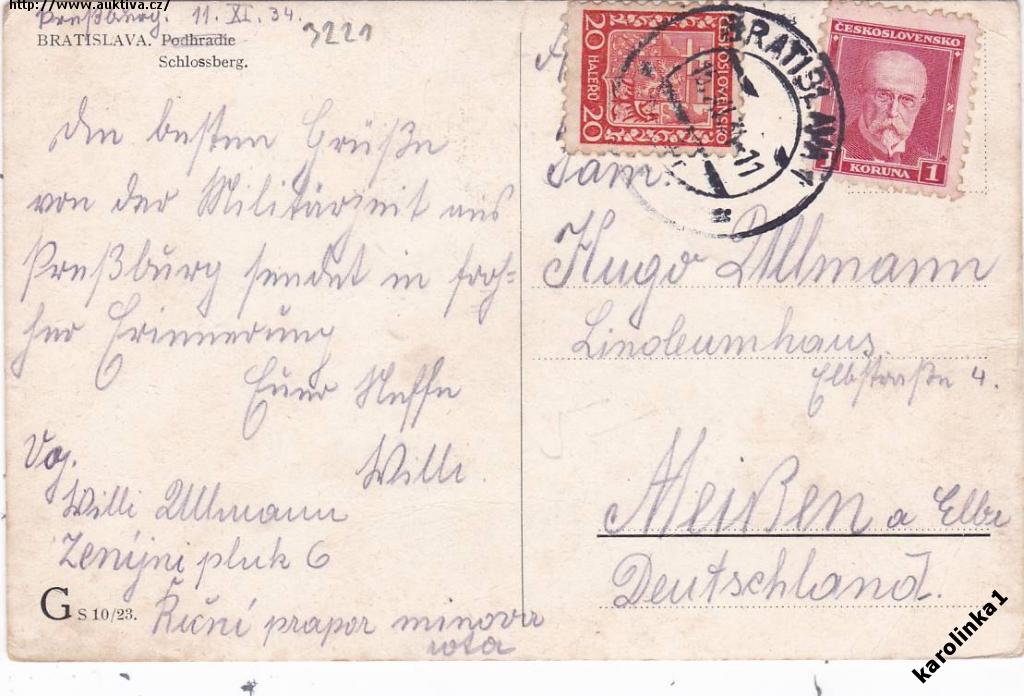 http://www.auktiva.cz/
Preßburg. 11. XI. 34.
3221
BRATISLAVA. Podhradie
Schlossberg.
Die besten Grüße
von der Militärzeit aus
Preßburg sendet in froh-
her Erinnerung
Euer Neffe
Willi
Voj.
Willi Ullmann
Ženijni pluk 6
Řiční prapor minova
rota
G S 10/23.
20 ČESKOSLOVENSKO 20
HALÉŘŮ
ČESKOSLOVENSKO
KORUNA 1
BRATISLAVA 1
Fam.
Hugo Ullmann
Linoleumhaus
Elbstraße 4.
Meißen a Elbe
Deutschland.
karolinka1